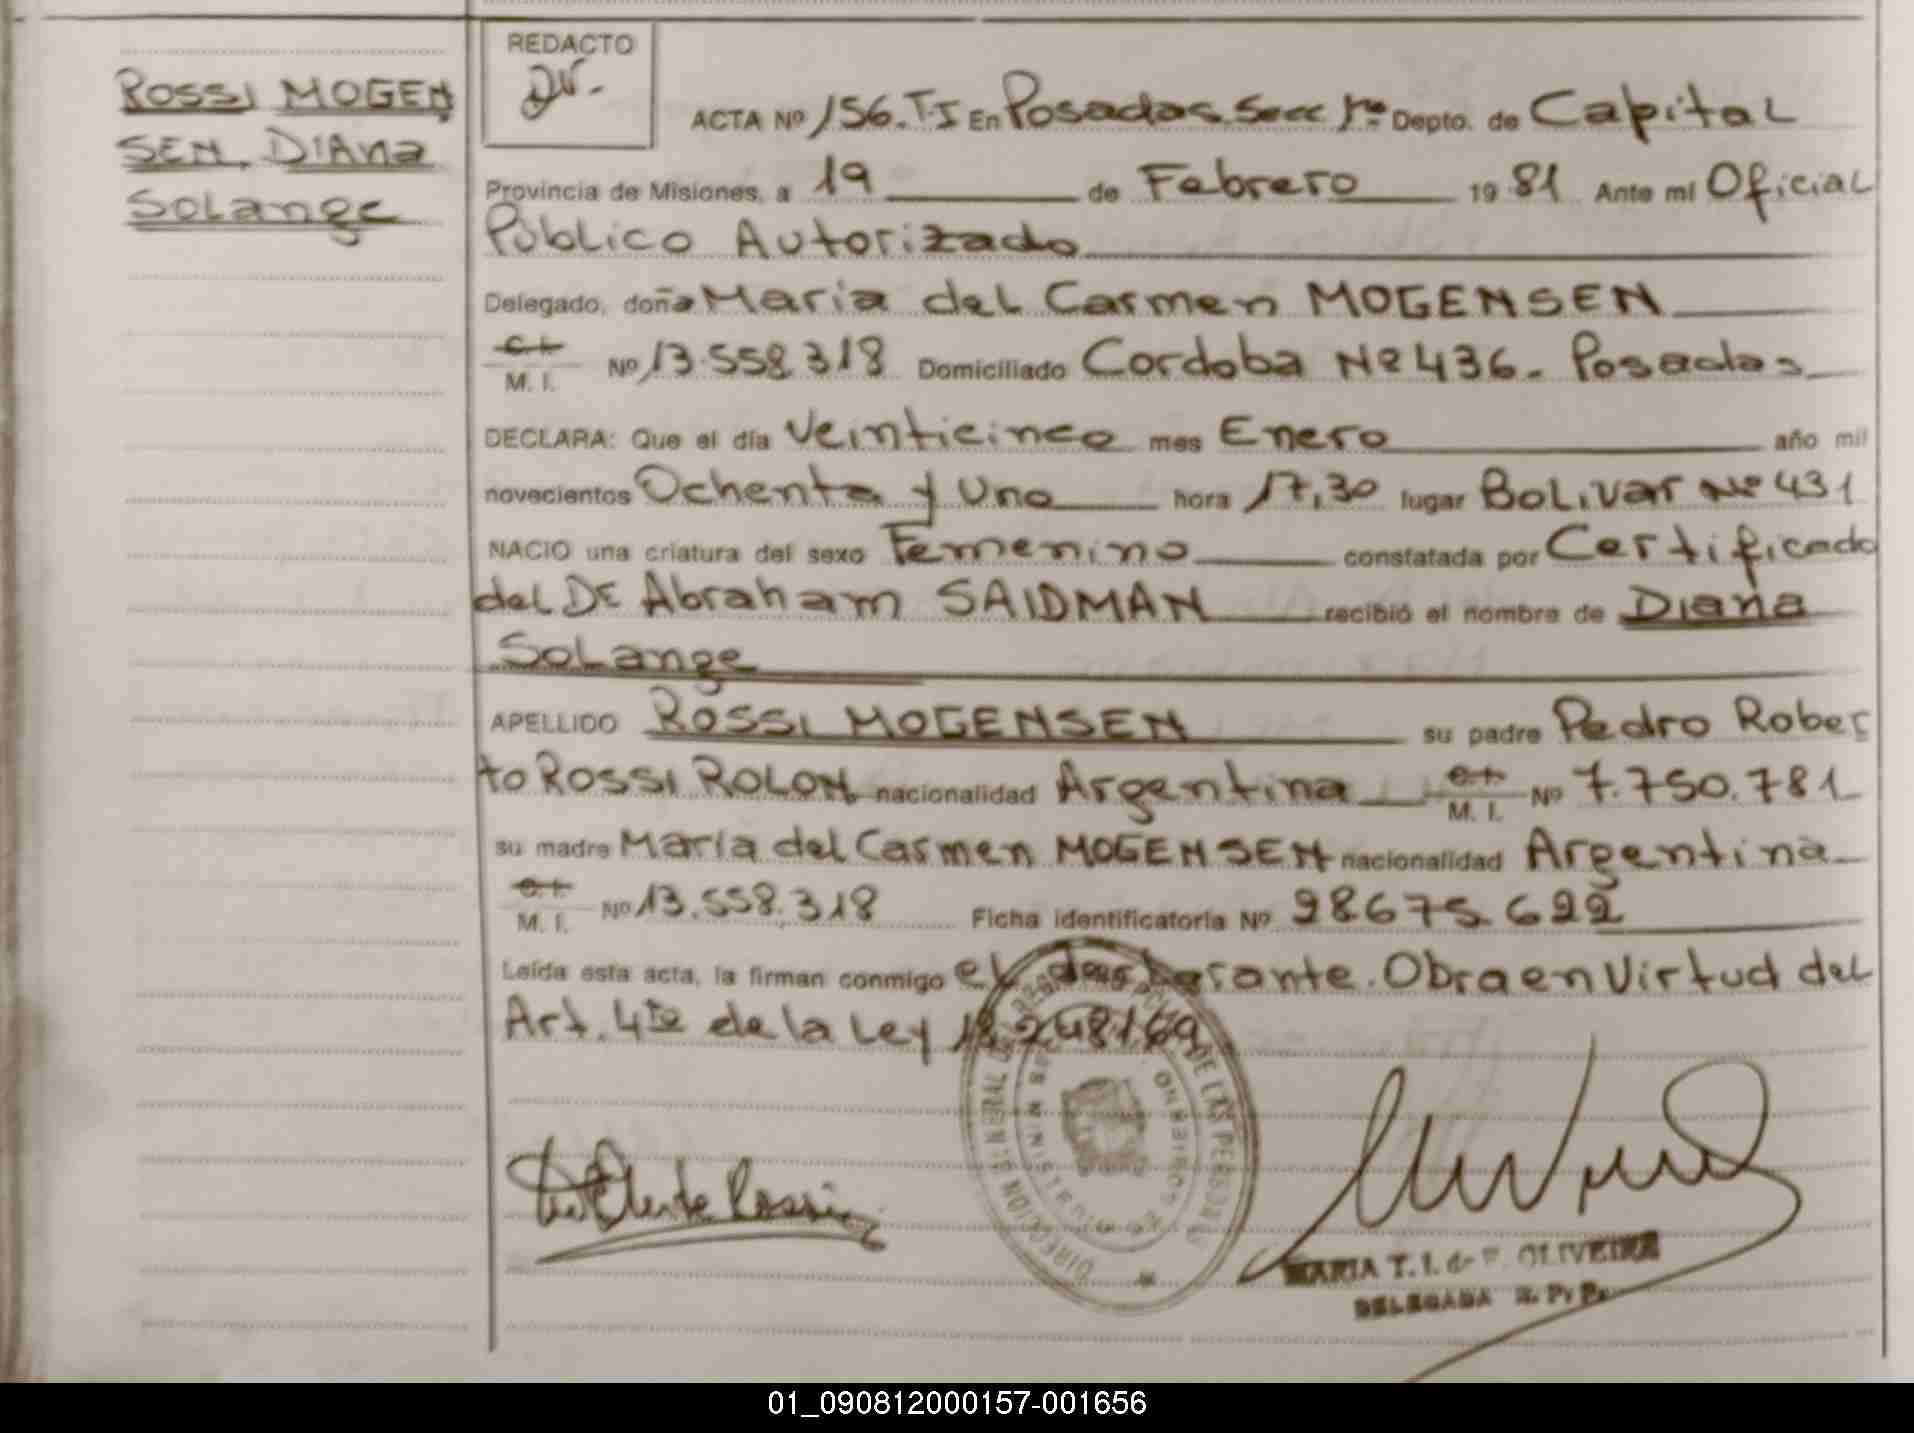 ROSSI MOGEN
SEN, DIANA
Solange
REDACTO
ACTA Nº 156. T.I En Posadas Secc 1ra Depto. de Capital
Provincia de Misiones, a 19 de Febrero 19 81 Ante mí Oficial
Público Autorizado
Delegado, doña María del Carmen MOGENSEN
C.I.
M. I. Nº 13.558.318 Domiciliado Cordoba Nº 436. Posadas
DECLARA: Que el día Veinticinco mes Enero año mil
novecientos Ochenta y Uno hora 17,30 lugar Bolivar Nº 431
NACIO una criatura del sexo Femenino constatada por Certificado
del Dr Abraham SAIDMAN recibió el nombre de Diana
Solange
APELLIDO ROSSI MOGENSEN su padre Pedro Rober
to ROSSI ROLON nacionalidad Argentina C.I. M. I. Nº 7.750.781
su madre María del Carmen MOGENSEN nacionalidad Argentina
C.I.
M. I. Nº 13.558.318 Ficha identificatoria Nº 28.675.622
Leída esta acta, la firman conmigo el declarante. Obra en Virtud del
Art. 4to de la Ley 18.248/69
DIRECCION GENERAL DEL REGISTRO DE LAS PERSONAS
MINISTERIO DE GOBIERNO
MARIA T. I. de F. OLIVEIRA
DELEGADA R. P.
01_090812000157-001656